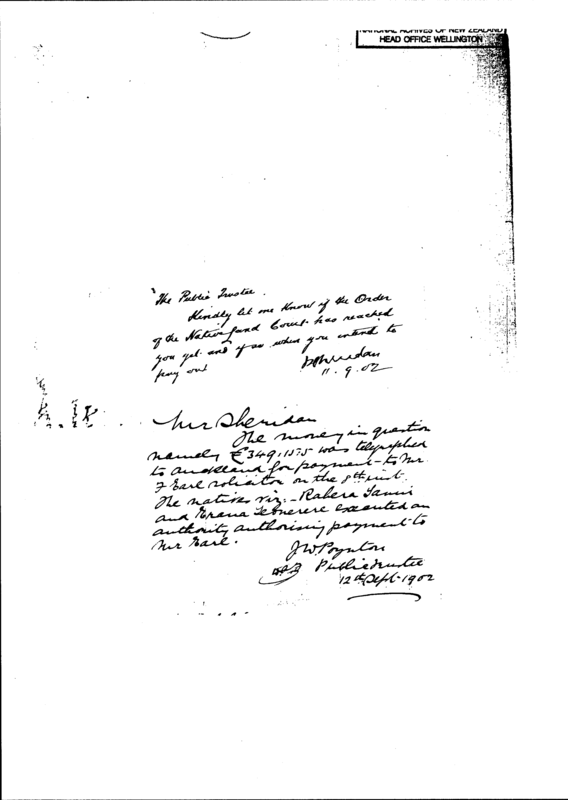 NATIONAL ARCHIVES OF NEW ZEALAND
HEAD OFFICE WELLINGTON
The Public Trustee.
Kindly let me know if the Order
of the Native Land Court has reached
you yet and if so when you intend to
pay out
11.9.02
Mr Sheridan
The money in question
namely £349.15.5 was telegraphed
to Auckland for payment to Mr.
F Earl solicitor on the 8th inst.
The natives viz:- Rahera
and Erana executed an
authority authorising payment to
Mr Earl.
J W Poynton
Public Trustee
12th Sept. 1902